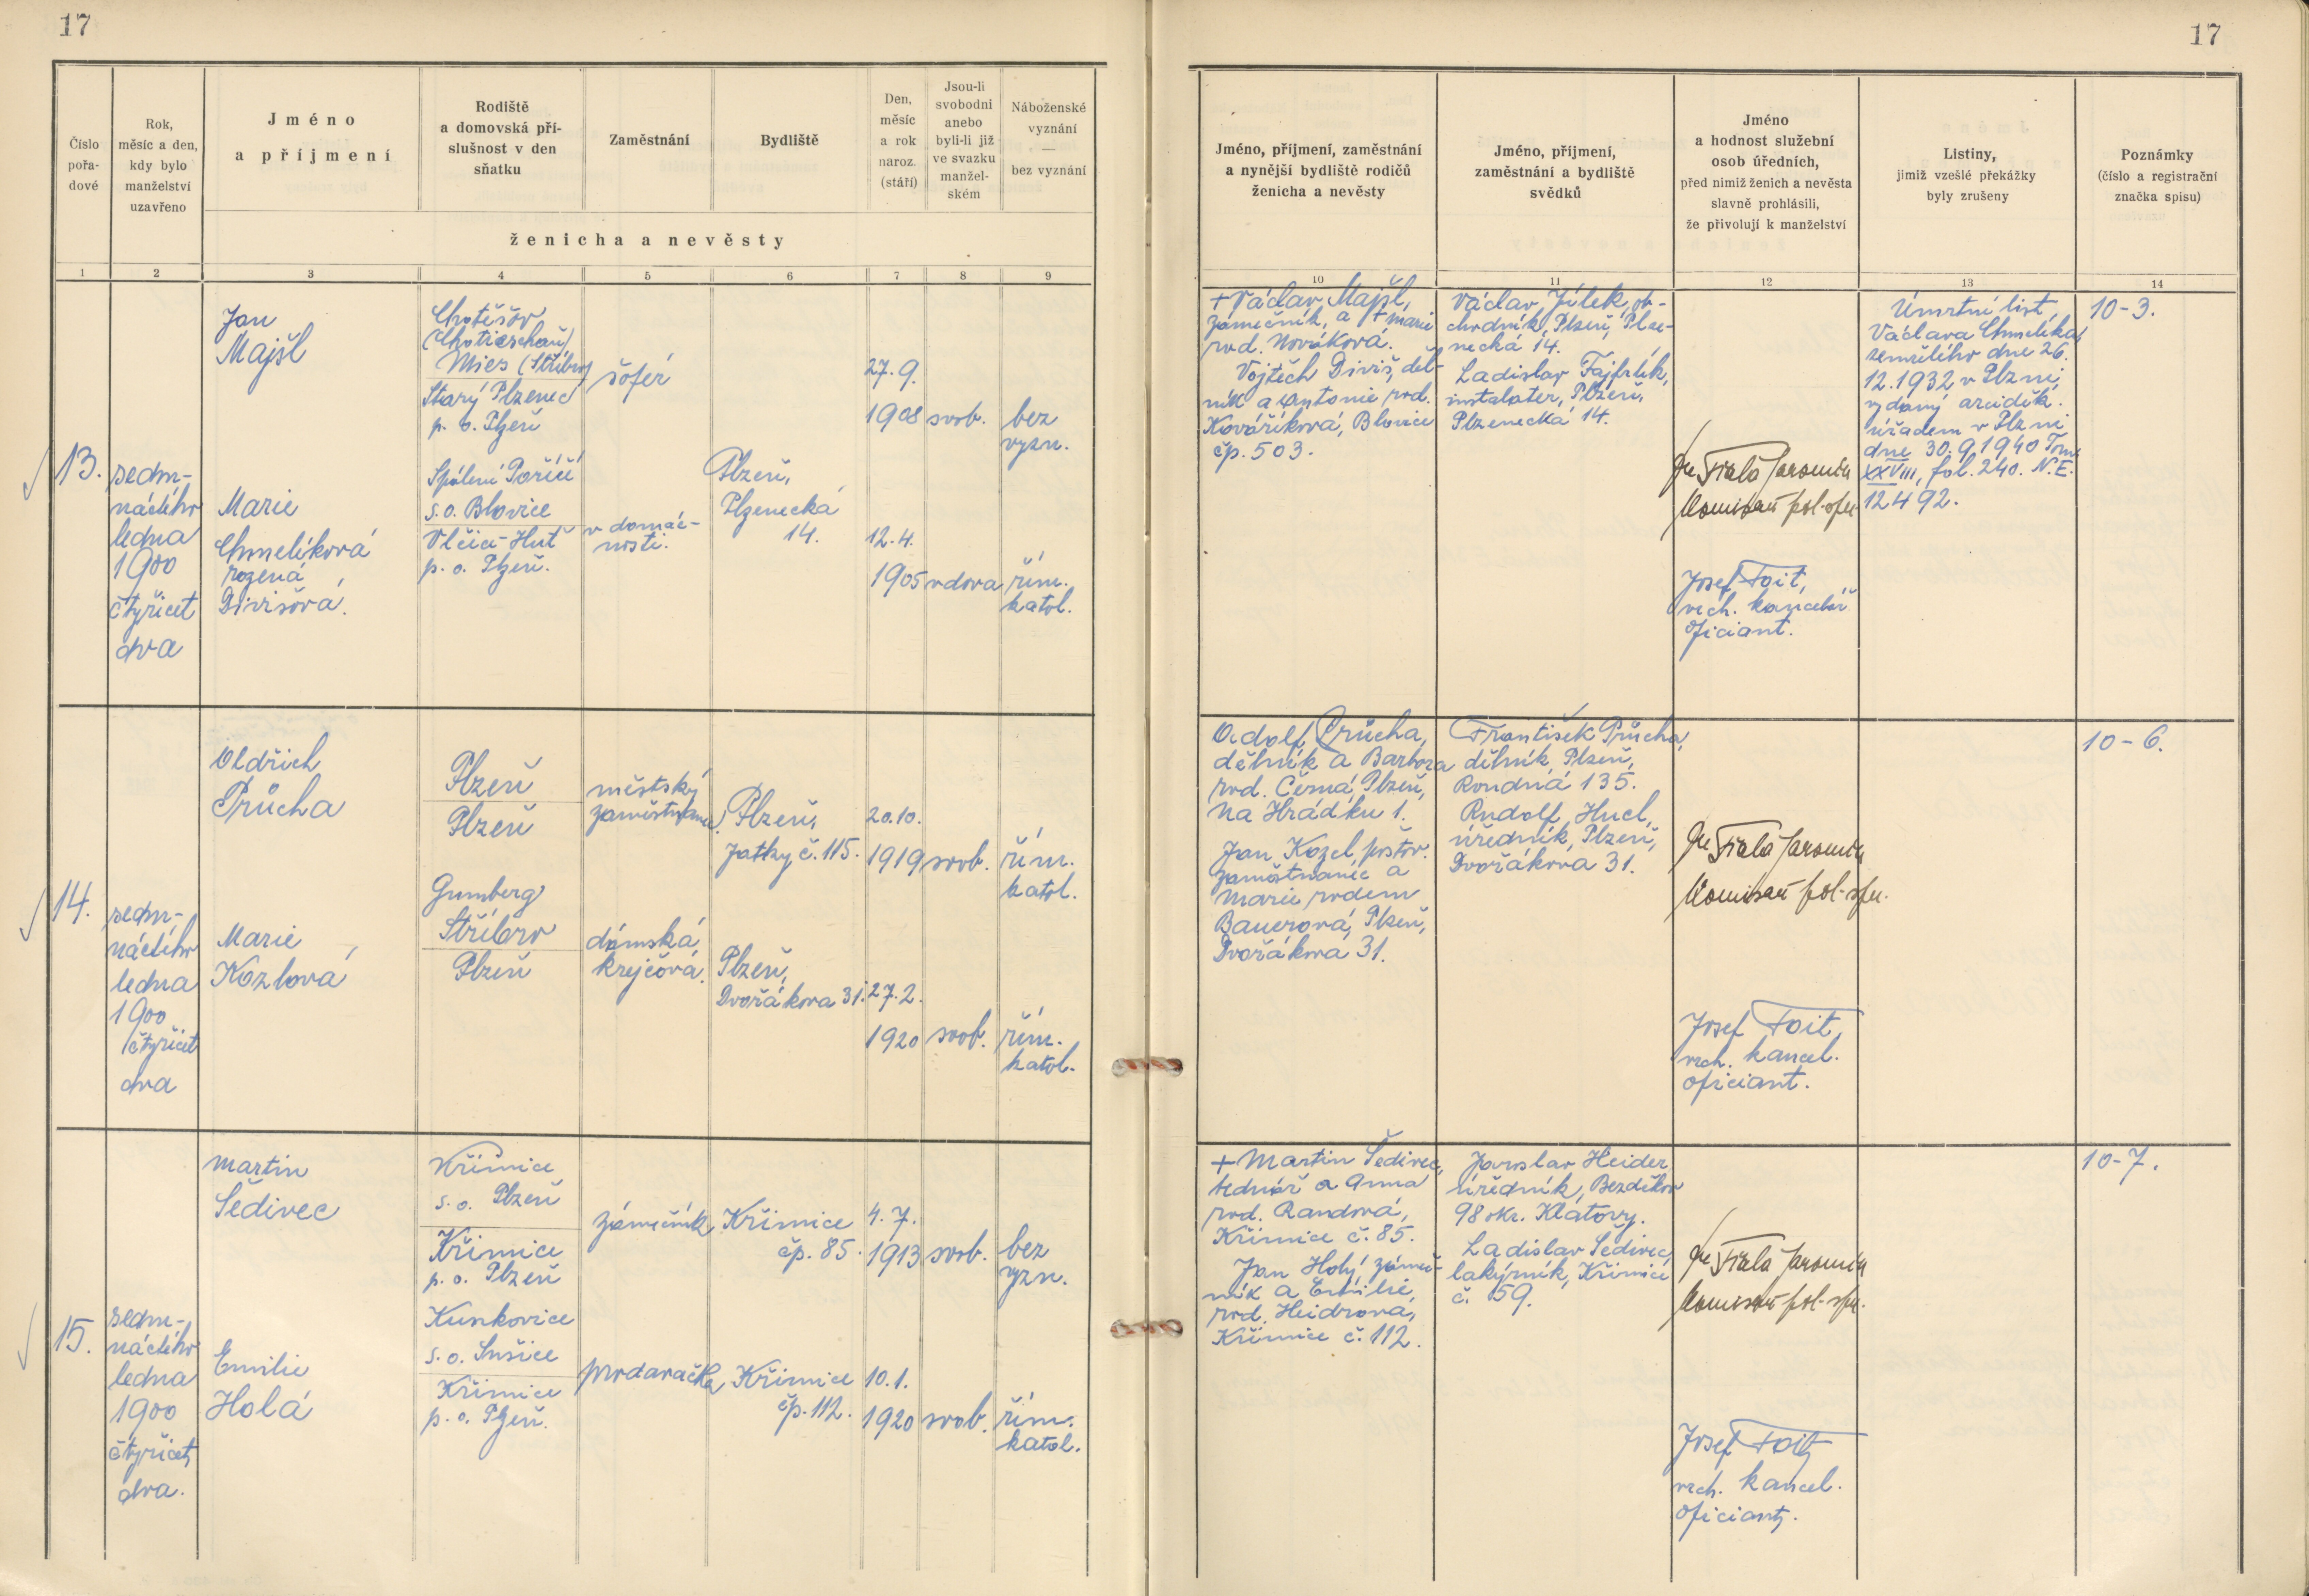 17
17
Číslo
pořa-
dové
Rok,
měsíc a den,
kdy bylo
manželství
uzavřeno
Jméno
a příjmení
Rodiště
a domovská pří-
slušnost v den
sňatku
Zaměstnání
Bydliště
Den,
měsíc
a rok
naroz.
(stáří)
Jsou-li
svobodni
anebo
byli-li již
ve svazku
manžel-
ském
Náboženské
vyznání
—
bez vyznání
ženicha a nevěsty
1 2 3 4 5 6 7 8 9
Jméno, příjmení, zaměstnání
a nynější bydliště rodičů
ženicha a nevěsty
Jméno, příjmení,
zaměstnání a bydliště
svědků
Jméno
a hodnost služební
osob úředních,
před nimiž ženich a nevěsta
slavně prohlásili,
že přivolují k manželství
Listiny,
jimiž vzešlé překážky
byly zrušeny
Poznámky
(číslo a registrační
značka spisu)
10 11 12 13 14
13.
sedm-
náctého
ledna
1900
čtyřicet
dva
Jan
Majšl
Marie
Chmelíková
rozená
Divišová.
Chotěšov
(Chotieschau)
Mies (Stříbro)
Starý Plzenec
p. o. Plzeň
Spálení Poříčí
s. o. Blovice
Vlčice-Huť
p. o. Plzeň.
šofér
v domác-
nosti.
Plzeň,
Plzenecká
14.
27. 9.
1908
12. 4.
1905
svob.
vdova
bez
vyzn.
řím.
katol.
+ Václav Majšl,
zámečník, a + Marie
rod. Nováková.
Vojtěch Diviš, děl-
ník a Antonie rod.
Kováříková, Blovice
čp. 503.
Václav Jílek, ob-
chodník, Plzeň, Plze-
necká 14.
Ladislav Fajfrlík,
instalater, Plzeň,
Plzenecká 14.
Fiala Jaromír
Komisař pol. spr.
Josef Foit,
vrch. kancelář.
oficiant.
Úmrtní list
Václava Chmelíka,
zemřelého dne 26.
12. 1932 v Plzni,
vydaný arciděk.
úřadem v Plzni
dne 30. 9. 1940 Tom.
XXVIII, fol. 240. N. E.
12492.
10-3.
14.
sedm-
náctého
ledna
1900
čtyřicet
dva
Oldřich
Průcha
Marie
Kozlová
Plzeň
Plzeň
Gumberg
Stříbro
Plzeň
městský
zaměstnanec.
dámská
krejčová.
Plzeň,
Jatky č. 115.
Plzeň,
Dvořákova 31.
20. 10.
1919
27. 2.
1920
svob.
svob.
řím.
katol.
řím.
katol.
Adolf Průcha,
dělník a Barbora
rod. Černá, Plzeň,
Na Hrádku 1.
Jan Kozel, poštov.
zaměstnanec a
Marie rodem
Bauerová, Plzeň,
Dvořákova 31.
František Průcha,
dělník, Plzeň,
Roudná 135.
Rudolf Hucl,
úředník, Plzeň,
Dvořákova 31.
Fiala Jaromír
Komisař pol. spr.
Josef Foit,
vrch. kancel.
oficiant.
10-6.
15.
sedm-
náctého
ledna
1900
čtyřicet
dva.
Martin
Šedivec
Emilie
Holá
Křimice
s. o. Plzeň
Křimice
p. o. Plzeň
Kunkovice
s. o. Sušice
Křimice
p. o. Plzeň.
zámečník
prodavačka
Křimice
čp. 85.
Křimice
čp. 112.
4. 7.
1913
10. 1.
1920
svob.
svob.
bez
vyzn.
řím.
katol.
+ Martin Šedivec,
bednář a Anna
rod. Randová,
Křimice č. 85.
Jan Holý, zámeč-
ník a Emilie,
rod. Heidrová,
Křimice č. 112.
Jaroslav Heider
úředník, Bezděkov
98 okr. Klatovy.
Ladislav Šedivec,
lakýrník, Křimice
č. 59.
Fiala Jaromír
Komisař pol. spr.
Josef Foit,
vrch. kancel.
oficiant.
10-7.